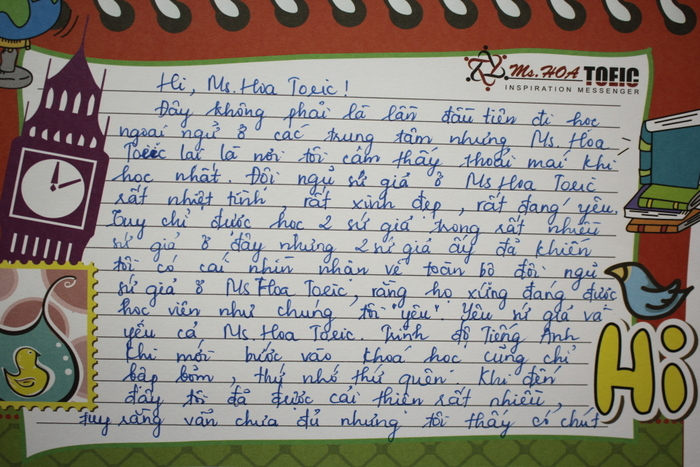 Ms. HOA TOEIC
INSPIRATION MESSENGER
Hi, Ms. Hoa Toeic!
Đây không phải là lần đầu tiên đi học
ngoại ngữ ở các trung tâm nhưng Ms. Hoa
Toeic lại là nơi tôi cảm thấy thoải mái khi
học nhất. Đội ngũ sứ giả ở Ms Hoa Toeic
rất nhiệt tình, rất xinh đẹp, rất đáng yêu.
Tuy chỉ được học 2 sứ giả trong rất nhiều
sứ giả ở đây nhưng 2 sứ giả ấy đã khiến
tôi có cái nhìn nhận về toàn bộ đội ngũ
sứ giả ở Ms Hoa Toeic, rằng họ xứng đáng được
học viên như chúng tôi "yêu". Yêu sứ giả và
yêu cả Ms. Hoa Toeic. Trình độ Tiếng Anh
khi mới bước vào khoá học cũng chỉ
bập bõm, thứ nhớ thứ quên. Khi đến
đây tôi đã được cải thiện rất nhiều,
tuy rằng vẫn chưa đủ nhưng tôi thấy có chút
Hi